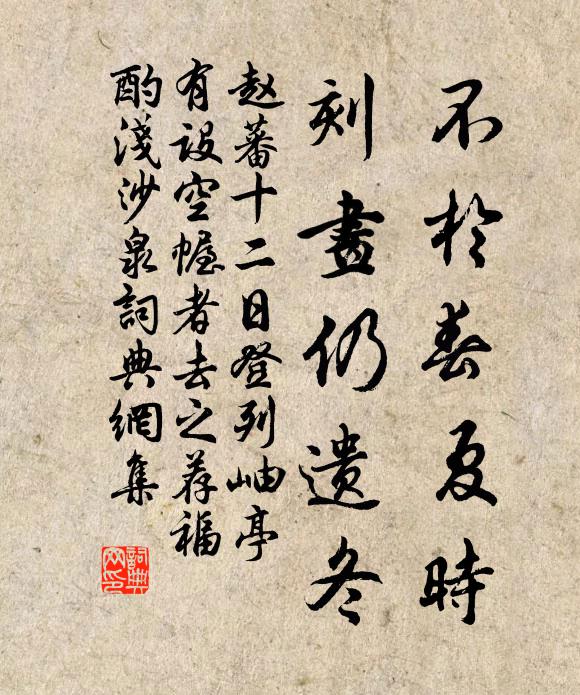 不於春夏時
刻畫仍遺冬
赵蕃十二日登列岫亭
有设空幄者去之荐福
酌淺沙泉詞典網集
詞典网印